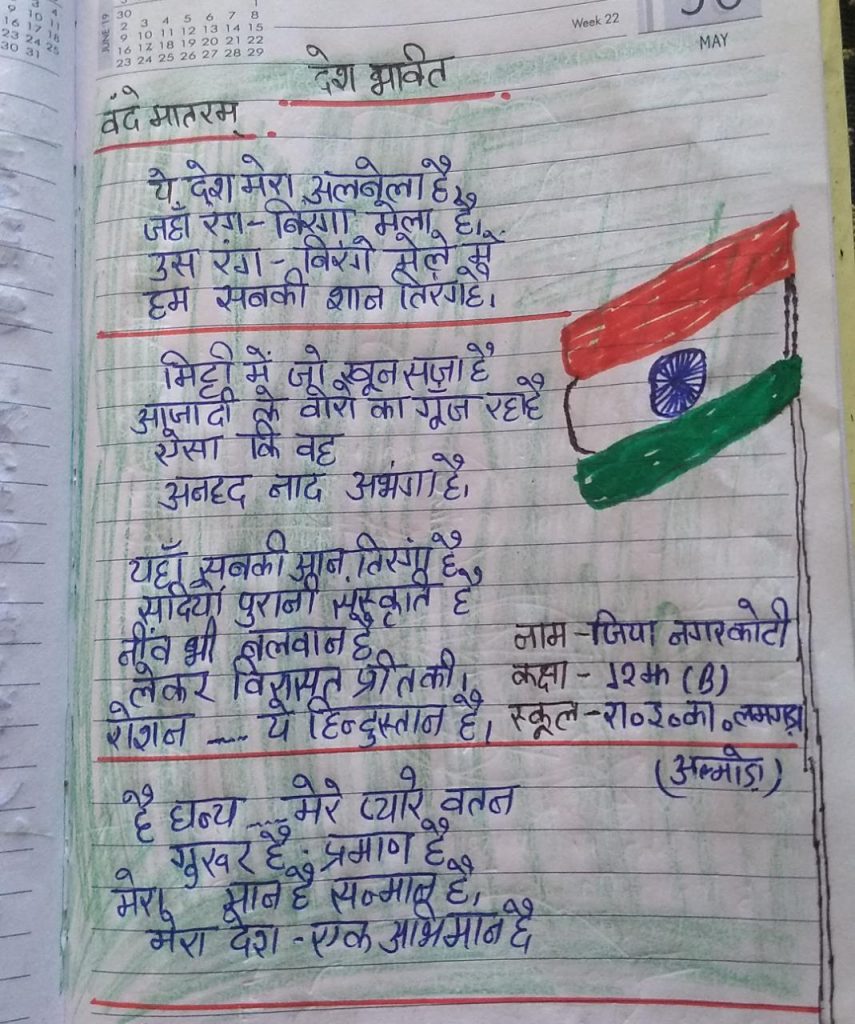 30 1
2 3 4 5 6 7 8
9 10 11 12 13 14 15
16 17 18 19 20 21 22
23 24 25 26 27 28 29
JUNE 19
Week 22
MAY
देश भक्ति
वंदे मातरम्
ये देश मेरा अलबेला है,
जहाँ रंग-बिरंगा मेला है।
उस रंग-बिरंगे मेले में
हम सबकी शान तिरंगहै।
मिट्टी में जो खून सजा है
आजादी के वीरों का गूँज रहा है
ऐसा कि वह
अनहद नाद अभंगा है।
यहाँ सबकी आन तिरंगा है
सदियों पुरानी संस्कृति है
नींव भी बलवान है
लेकर विरासत प्रीत की।
रोशन .... ये हिन्दुस्तान है।
नाम - जिया नगरकोटी
कक्षा - 12th (B)
स्कूल - रा०इ०का०लमगड़ा
(अल्मोड़ा)
है धन्य .... मेरे प्यारे वतन
गुरूर है - प्रमाण है
मेरा, मान है सम्मान है,
मेरा देश - एक अभिमान है